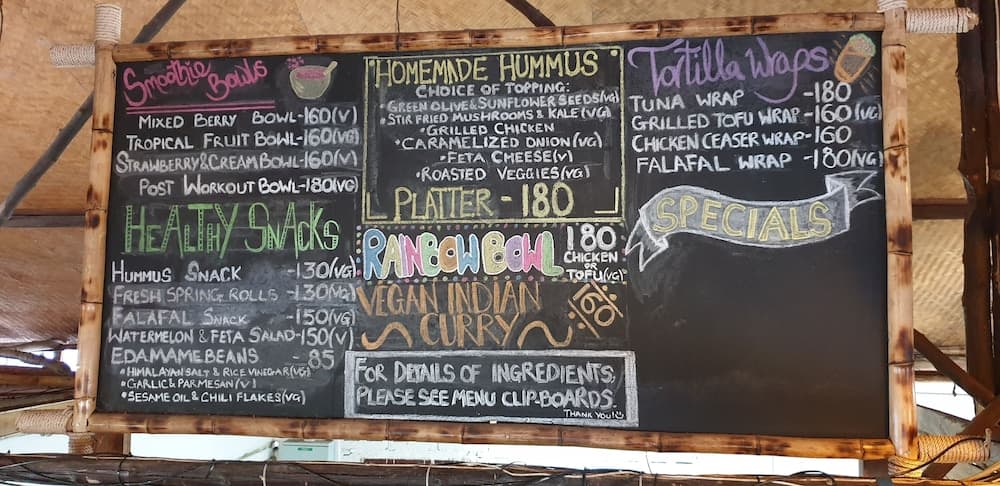 Smoothie Bowls
MIXED BERRY BOWL-160(V)
TROPICAL FRUIT BOWL-160(V)
STRAWBERRY & CREAM BOWL-160(V)
POST WORKOUT BOWL-180(VG)
HEALTHY SNACKS
HUMMUS SNACK -130(VG)
FRESH SPRING ROLLS -130(VG)
FALAFAL SNACK -150(VG)
WATERMELON & FETA SALAD-150(V)
EDAMAME BEANS - 85
•HIMALAYAN SALT & RICE VINEGAR(VG)
•GARLIC & PARMESAN(V)
•SESAME OIL & CHILI FLAKES(VG)
HOMEMADE HUMMUS
CHOICE OF TOPPING:
GREEN OLIVE & SUNFLOWER SEEDS(VG)
•STIR FRIED MUSHROOMS & KALE (VG)
•GRILLED CHICKEN
•CARAMELIZED ONION(VG)
•FETA CHEESE(V)
•ROASTED VEGGIES(VG)
PLATTER - 180
RAINBOW BOWL 180
CHICKEN
OR
TOFU(VG)
VEGAN INDIAN
CURRY 160
FOR DETAILS OF INGREDIENTS,
PLEASE SEE MENU CLIP-BOARDS.
THANK YOU!
Tortilla Wraps
TUNA WRAP -180
GRILLED TOFU WRAP-160(VG)
CHICKEN CEASER WRAP-160
FALAFAL WRAP -180(VG)
SPECIALS